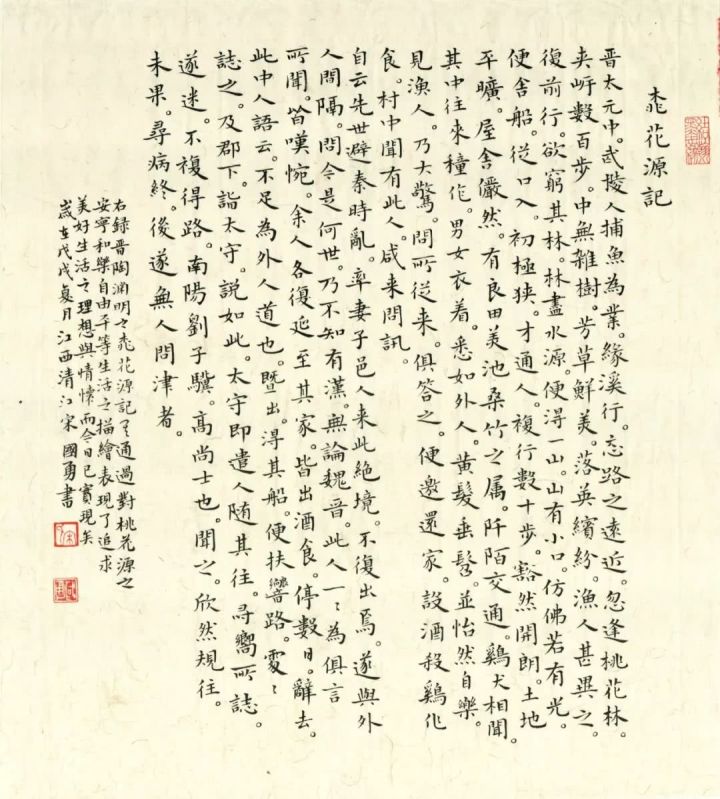 桃花源記
晋太元中。武陵人捕魚為業。緣溪行。忘路之遠近。忽逢桃花林。
夾岸數百步。中無雜樹。芳草鮮美。落英繽紛。漁人甚異之。
復前行。欲窮其林。林盡水源。便得一山。山有小口。仿佛若有光。
便舍船。從口入。初極狹。才通人。複行數十步。豁然開朗。土地
平曠。屋舍儼然。有良田美池桑竹之属。阡陌交通。鷄犬相聞。
其中往來種作。男女衣着。悉如外人。黄髮垂髫。並怡然自樂。
見漁人。乃大驚。問所從来。俱答之。便邀還家。設酒殺鷄作
食。村中聞有此人。咸来問訊。
自云先世避秦時亂。率妻子邑人来此絶境。不復出焉。遂與外
人間隔。問今是何世。乃不知有漢。無論魏晋。此人一〻為俱言
所聞。皆嘆惋。余人各復延至其家。皆出酒食。停數日。辭去。
此中人語云。不足為外人道也。暨出。得其船。便扶嚮路。處〻
誌之。及郡下。詣太守。説如此。太守即遣人随其往。尋嚮所誌。
遂迷。不複得路。南陽劉子驥。高尚士也。聞之。欣然規往。
未果。尋病終。後遂無人問津者。
右錄晋陶渊明之桃花源記是通過對桃花源之
安寧和樂自由平等生活之描繪表現了追求
美好生活之理想與情懷而今日已實現矣
歲在戊戌夏月江西清江宋國勇書